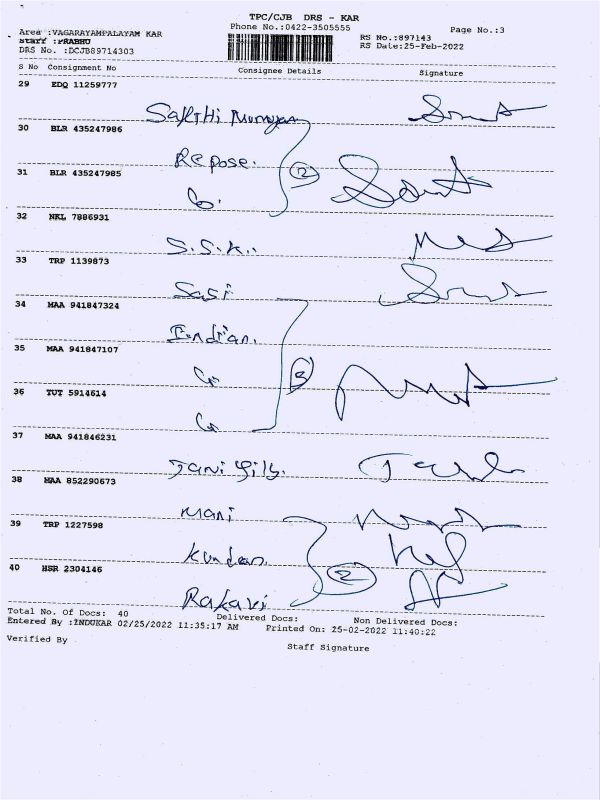 TPC/CJB DRS - KAR
Phone No.:0422-3505555
Page No.:3
Area :VAGARAYAMPALAYAM KAR
Staff :PRABHU
DRS No. :DCJB89714303
RS No.:897143
RS Date:25-Feb-2022
S No Consignment No Consignee Details Signature
29 EDQ 11259777
Sakthi Murugan
30 BLR 435247986
Repose.
31 BLR 435247985
2
32 NKL 7886931
S.S.K.
33 TRP 1139873
Sasi
34 MAA 941847324
Indian.
35 MAA 941847107
3
36 TUT 5914614
37 MAA 941846231
38 MAA 852290673
Mani
39 TRP 1227598
Kundan.
2
40 HSR 2304146
Rakavi
Total No. Of Docs: 40 Delivered Docs: Non Delivered Docs:
Entered By :INDUKAR 02/25/2022 11:35:17 AM Printed On: 25-02-2022 11:40:22
Verified By
Staff Signature